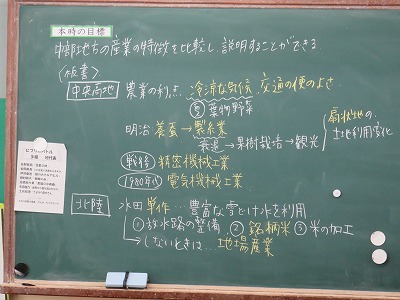 本時の目標
中部地方の産業の特徴を比較し、説明することができる
〈板書〉
中央高地 農業の利点 冷涼な気候、交通の便のよさ
葉物野菜
明治 養蚕→製糸業
衰退→果樹栽培→観光
扇状地の土地利用変化
戦後 精密機械工業
1980年代 電気機械工業
北陸 水田単作…豊富な雪どけ水を利用
①放水路の整備 ②銘柄米 ③米の加工
→しないときは… 地場産業